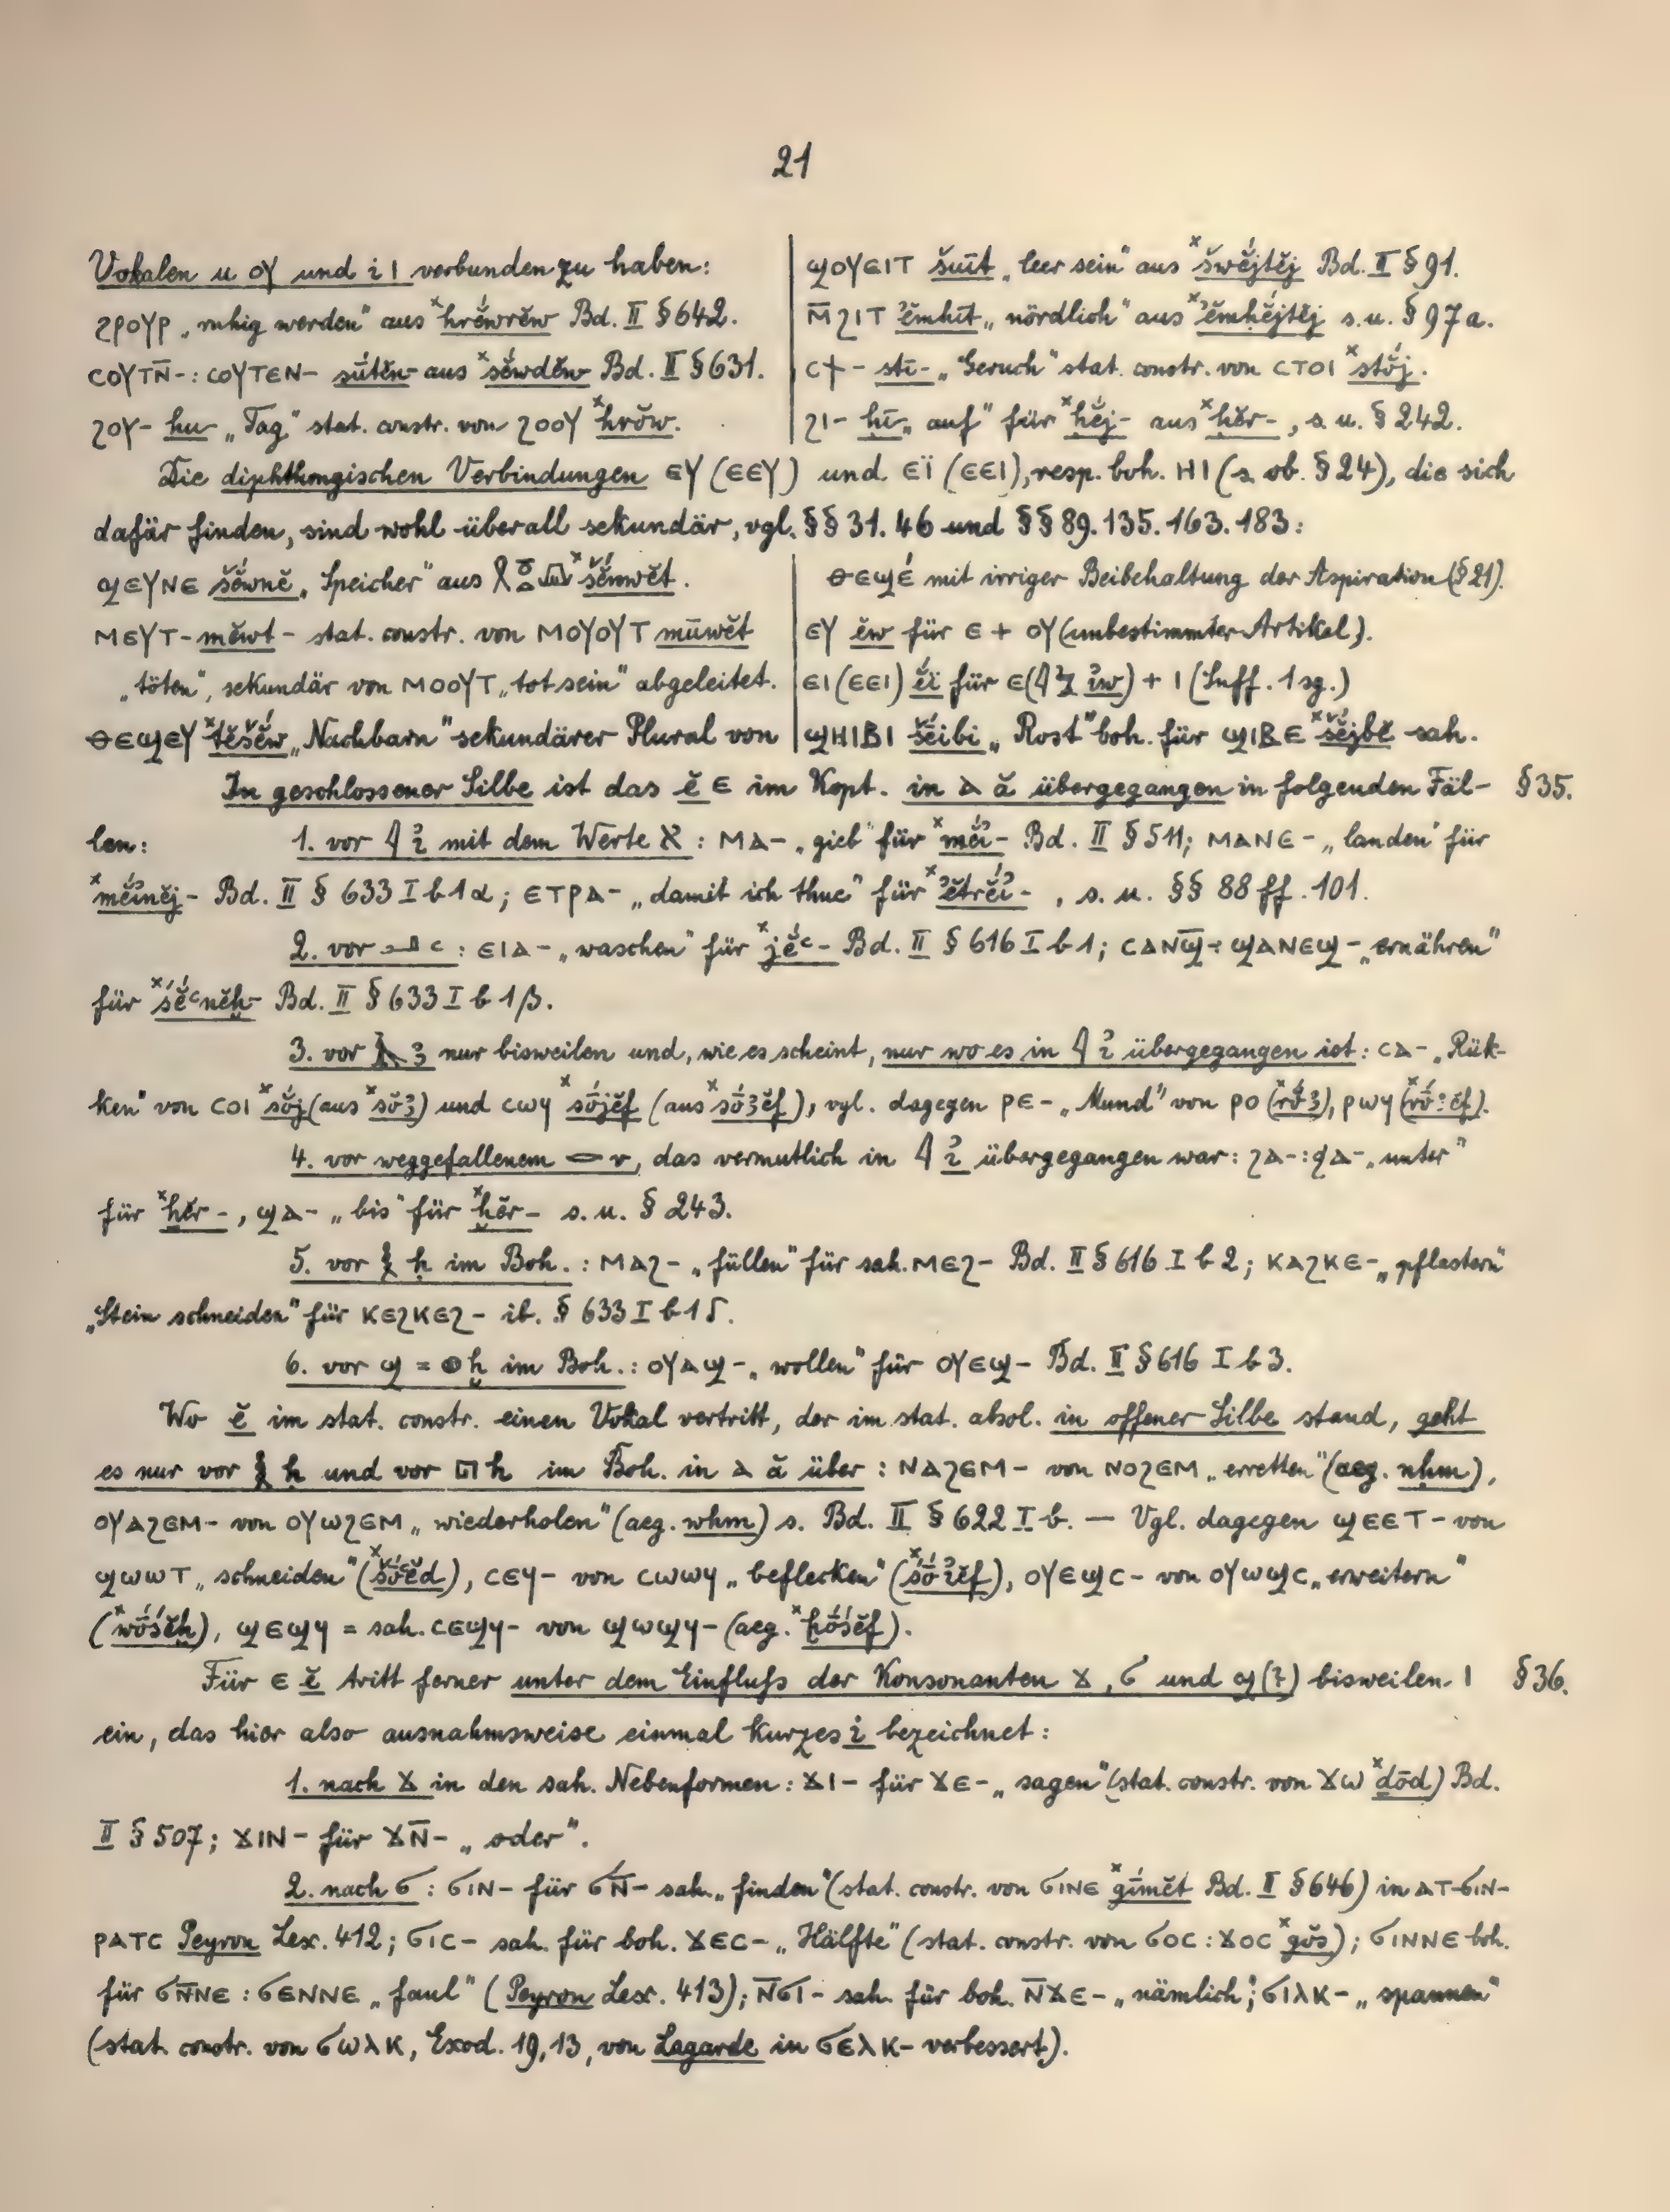 21
Vokalen u ⲟⲩ und i ⲓ verbunden zu haben:
ϩⲣⲟⲩⲣ „ruhig werden“ aus ˣhrĕ́wrĕw Bd. II § 642.
ⲥⲟⲩⲧⲛ̅-: ⲥⲟⲩⲧⲉⲛ- sŭ́tĕn- aus ˣsĕ́wdĕn- Bd. II § 631.
ϩⲟⲩ- hu- „Tag“ stat. constr. von ϩⲟⲟⲩ ˣhrŏw.
ϣⲟⲩⲉⲓⲧ šuı̄t „leer sein“ aus ˣšwĕ́jtĕj Bd. II § 91.
ⲙ̅ϩⲓⲧ ꜣĕmḥı̄t „nördlich“ aus ˣꜣĕmḥĕ́jtĕj s. u. § 97a.
ⲥϯ- stı̆- „Geruch“ stat. constr. von ⲥⲧⲟⲓ ˣstŏ́j.
ϩⲓ- ḥı̆- „auf“ für ˣḥĕj- aus ˣḥĕr-, s. u. § 242.
Die diphthongischen Verbindungen ⲉⲩ (ⲉⲉⲩ) und ⲉⲓ̈ (ⲉⲉⲓ), resp. boh. ⲏⲓ (s. ob. § 24), die sich
dafür finden, sind wohl überall sekundär, vgl. §§ 31. 46 und §§ 89. 135. 163. 183:
ϣⲉⲩⲛⲉ šĕ́wnĕ „Speicher“ aus ˣšĕ́nwĕt.
ⲙⲉⲩⲧ- mĕwt- stat. constr. von ⲙⲟⲩⲟⲩⲧ mūwĕt
„töten“, sekundär von ⲙⲟⲟⲩⲧ „tot sein“ abgeleitet.
ⲑⲉϣⲉⲩ ˣtĕšĕ́w „Nachbarn“ sekundärer Plural von
ⲑⲉϣⲉ́ mit irriger Beibehaltung der Aspiration (§ 21).
ⲉⲩ ĕw für ⲉ + ⲟⲩ (unbestimmter Artikel).
ⲉⲓ (ⲉⲉⲓ) ĕ́ï für ⲉ (𓇋𓅱 ꞽw) + ⲓ (Suff. 1 sg.)
ϣⲏⲓⲃⲓ šĕ́ibi „Rost“ boh. für ϣⲓⲃⲉ ˣšĕ́jbĕ sah.
In geschlossener Silbe ist das ĕ ⲉ im Kopt. in ⲁ ă übergegangen in folgenden Fäl- § 35.
len: 1. vor 𓇋 ꞽ mit dem Werte א: ⲙⲁ- „gieb“ für ˣmĕ́ꞽ- Bd. II § 511; ⲙⲁⲛⲉ- „landen“ für
ˣmĕ́ꞽnĕj- Bd. II § 633 I b 1 α; ⲉⲧⲣⲁ- „damit ich thue“ für ˣꜣĕtrĕ́ꞽ-, s. u. §§ 88 ff. 101.
2. vor 𓂝 ꜥ: ⲉⲓⲁ- „waschen“ für ˣjĕ́ꜥ- Bd. II § 616 I b 1; ⲥⲁⲛϣ̅: ϣⲁⲛⲉϣ- „ernähren“
für ˣsĕ́ꜥnĕḫ- Bd. II § 633 I b 1 β.
3. vor 𓄿 ꜣ nur bisweilen und, wie es scheint, nur wo es in 𓇋 ꞽ übergegangen ist: ⲥⲁ- „Rük-
ken“ von ⲥⲟⲓ ˣsŏ́j (aus ˣsŏ́ꜣ) und ⲥⲱϥ ˣsṓjĕf (aus ˣsṓꜣĕf), vgl. dagegen ⲣⲉ- „Mund“ von ⲣⲟ (ˣrŏ́ꜣ), ⲣⲱϥ (ˣrṓꜣĕf).
4. vor weggefallenem 𓂋 r, das vermutlich in 𓇋 ꞽ übergegangen war: ϩⲁ-: ϧⲁ- „unter“
für ˣẖĕr-, ϣⲁ- „bis“ für ˣḫĕr- s. u. § 243.
5. vor 𓎛 ḥ im Boh.: ⲙⲁϩ- „füllen“ für sah. ⲙⲉϩ- Bd. II § 616 I b 2; ⲕⲁϩⲕⲉ- „pflastern“
„Stein schneiden“ für ⲕⲉϩⲕⲉϩ- ib. § 633 I b 1 δ.
6. vor ϣ = 𓐍 ḫ im Boh.: ⲟⲩⲁϣ- „wollen“ für ⲟⲩⲉϣ- Bd. II § 616 I b 3.
Wo ĕ im stat. constr. einen Vokal vertritt, der im stat. absol. in offener Silbe stand, geht
es nur vor 𓎛 ḥ und vor 𓉔 h im Boh. in ⲁ ă über: ⲛⲁϩⲉⲙ- von ⲛⲟϩⲉⲙ „erretten“ (aeg. nḥm),
ⲟⲩⲁϩⲉⲙ- von ⲟⲩⲱϩⲉⲙ „wiederholen“ (aeg. wḥm) s. Bd. II § 622 I b. — Vgl. dagegen ϣⲉⲉⲧ- von
ϣⲱⲱⲧ „schneiden“ (ˣšṓꜥĕd), ⲥⲉϥ- von ⲥⲱⲱϥ „beflecken“ (ˣsṓꞽĕf), ⲟⲩⲉϣⲥ- von ⲟⲩⲱϣⲥ „erweitern“
(ˣwṓsĕḫ), ϣⲉϣϥ = sah. ⲥⲉϣϥ- von ϣⲱϣϥ- (aeg. ˣḫṓsĕf).
Für ⲉ ĕ tritt ferner unter dem Einfluſs der Konsonanten ϫ, ϭ und ϣ(?) bisweilen ⲓ § 36.
ein, das hier also ausnahmsweise einmal kurzes ĭ bezeichnet:
1. nach ϫ in den sah. Nebenformen: ϫⲓ- für ϫⲉ- „sagen“ (stat. constr. von ϫⲱ ˣḏōd) Bd.
II § 507; ϫⲓⲛ- für ϫⲛ̅- „oder“.
2. nach ϭ: ϭⲓⲛ- für ϭⲛ̅- sah. „finden“ (stat. constr. von ϭⲓⲛⲉ ˣgı́mĕt Bd. II § 646) in ⲁⲧ-ϭⲓⲛ-
ⲣⲁⲧⲥ Peyron Lex. 412; ϭⲓⲥ- sah. für boh. ϫⲉⲥ- „Hälfte“ (stat. constr. von ϭⲟⲥ: ϫⲟⲥ ˣgŏs); ϭⲓⲛⲛⲉ boh.
für ϭⲛ̅ⲛⲉ: ϭⲉⲛⲛⲉ „faul“ (Peyron Lex. 413); ⲛ̅ϭⲓ- sah. für boh. ⲛ̅ϫⲉ- „nämlich“; ϭⲓⲗⲕ- „spannen“
(stat. constr. von ϭⲱⲗⲕ, Exod. 19,13, von Lagarde in ϭⲉⲗⲕ- verbessert).